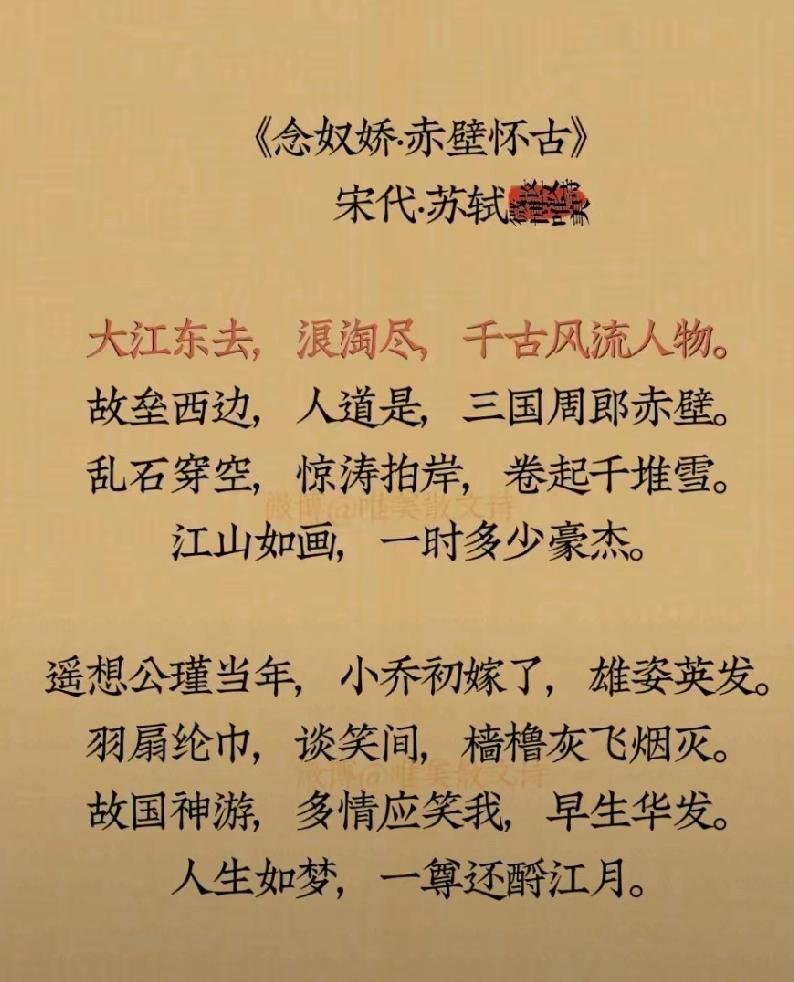 《念奴娇·赤壁怀古》
宋代·苏轼
大江东去，浪淘尽，千古风流人物。
故垒西边，人道是，三国周郎赤壁。
乱石穿空，惊涛拍岸，卷起千堆雪。
微博@唯美散文诗
江山如画，一时多少豪杰。
遥想公瑾当年，小乔初嫁了，雄姿英发。
羽扇纶巾，谈笑间，樯橹灰飞烟灭。
微博@唯美散文诗
故国神游，多情应笑我，早生华发。
人生如梦，一尊还酹江月。